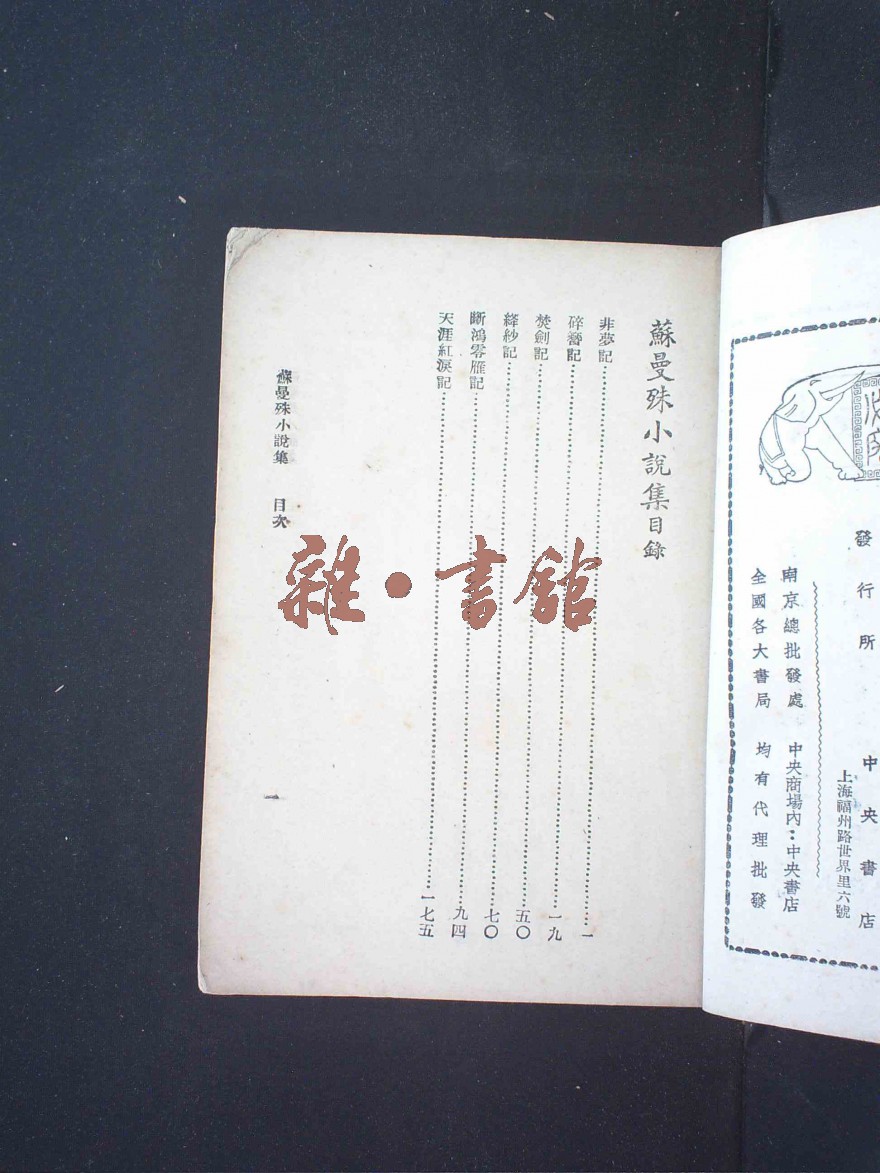 發行所 中央書店
上海福州路世界里六號
南京總批發處 中央商場內：中央書店
全國各大書局 均有代理批發
蘇曼殊小說集目錄
非夢記……一
碎簪記……一九
焚劍記……五〇
絳紗記……七〇
斷鴻零雁記……九四
天涯紅淚記……一七五
蘇曼殊小說集 目次
一
雜·書館